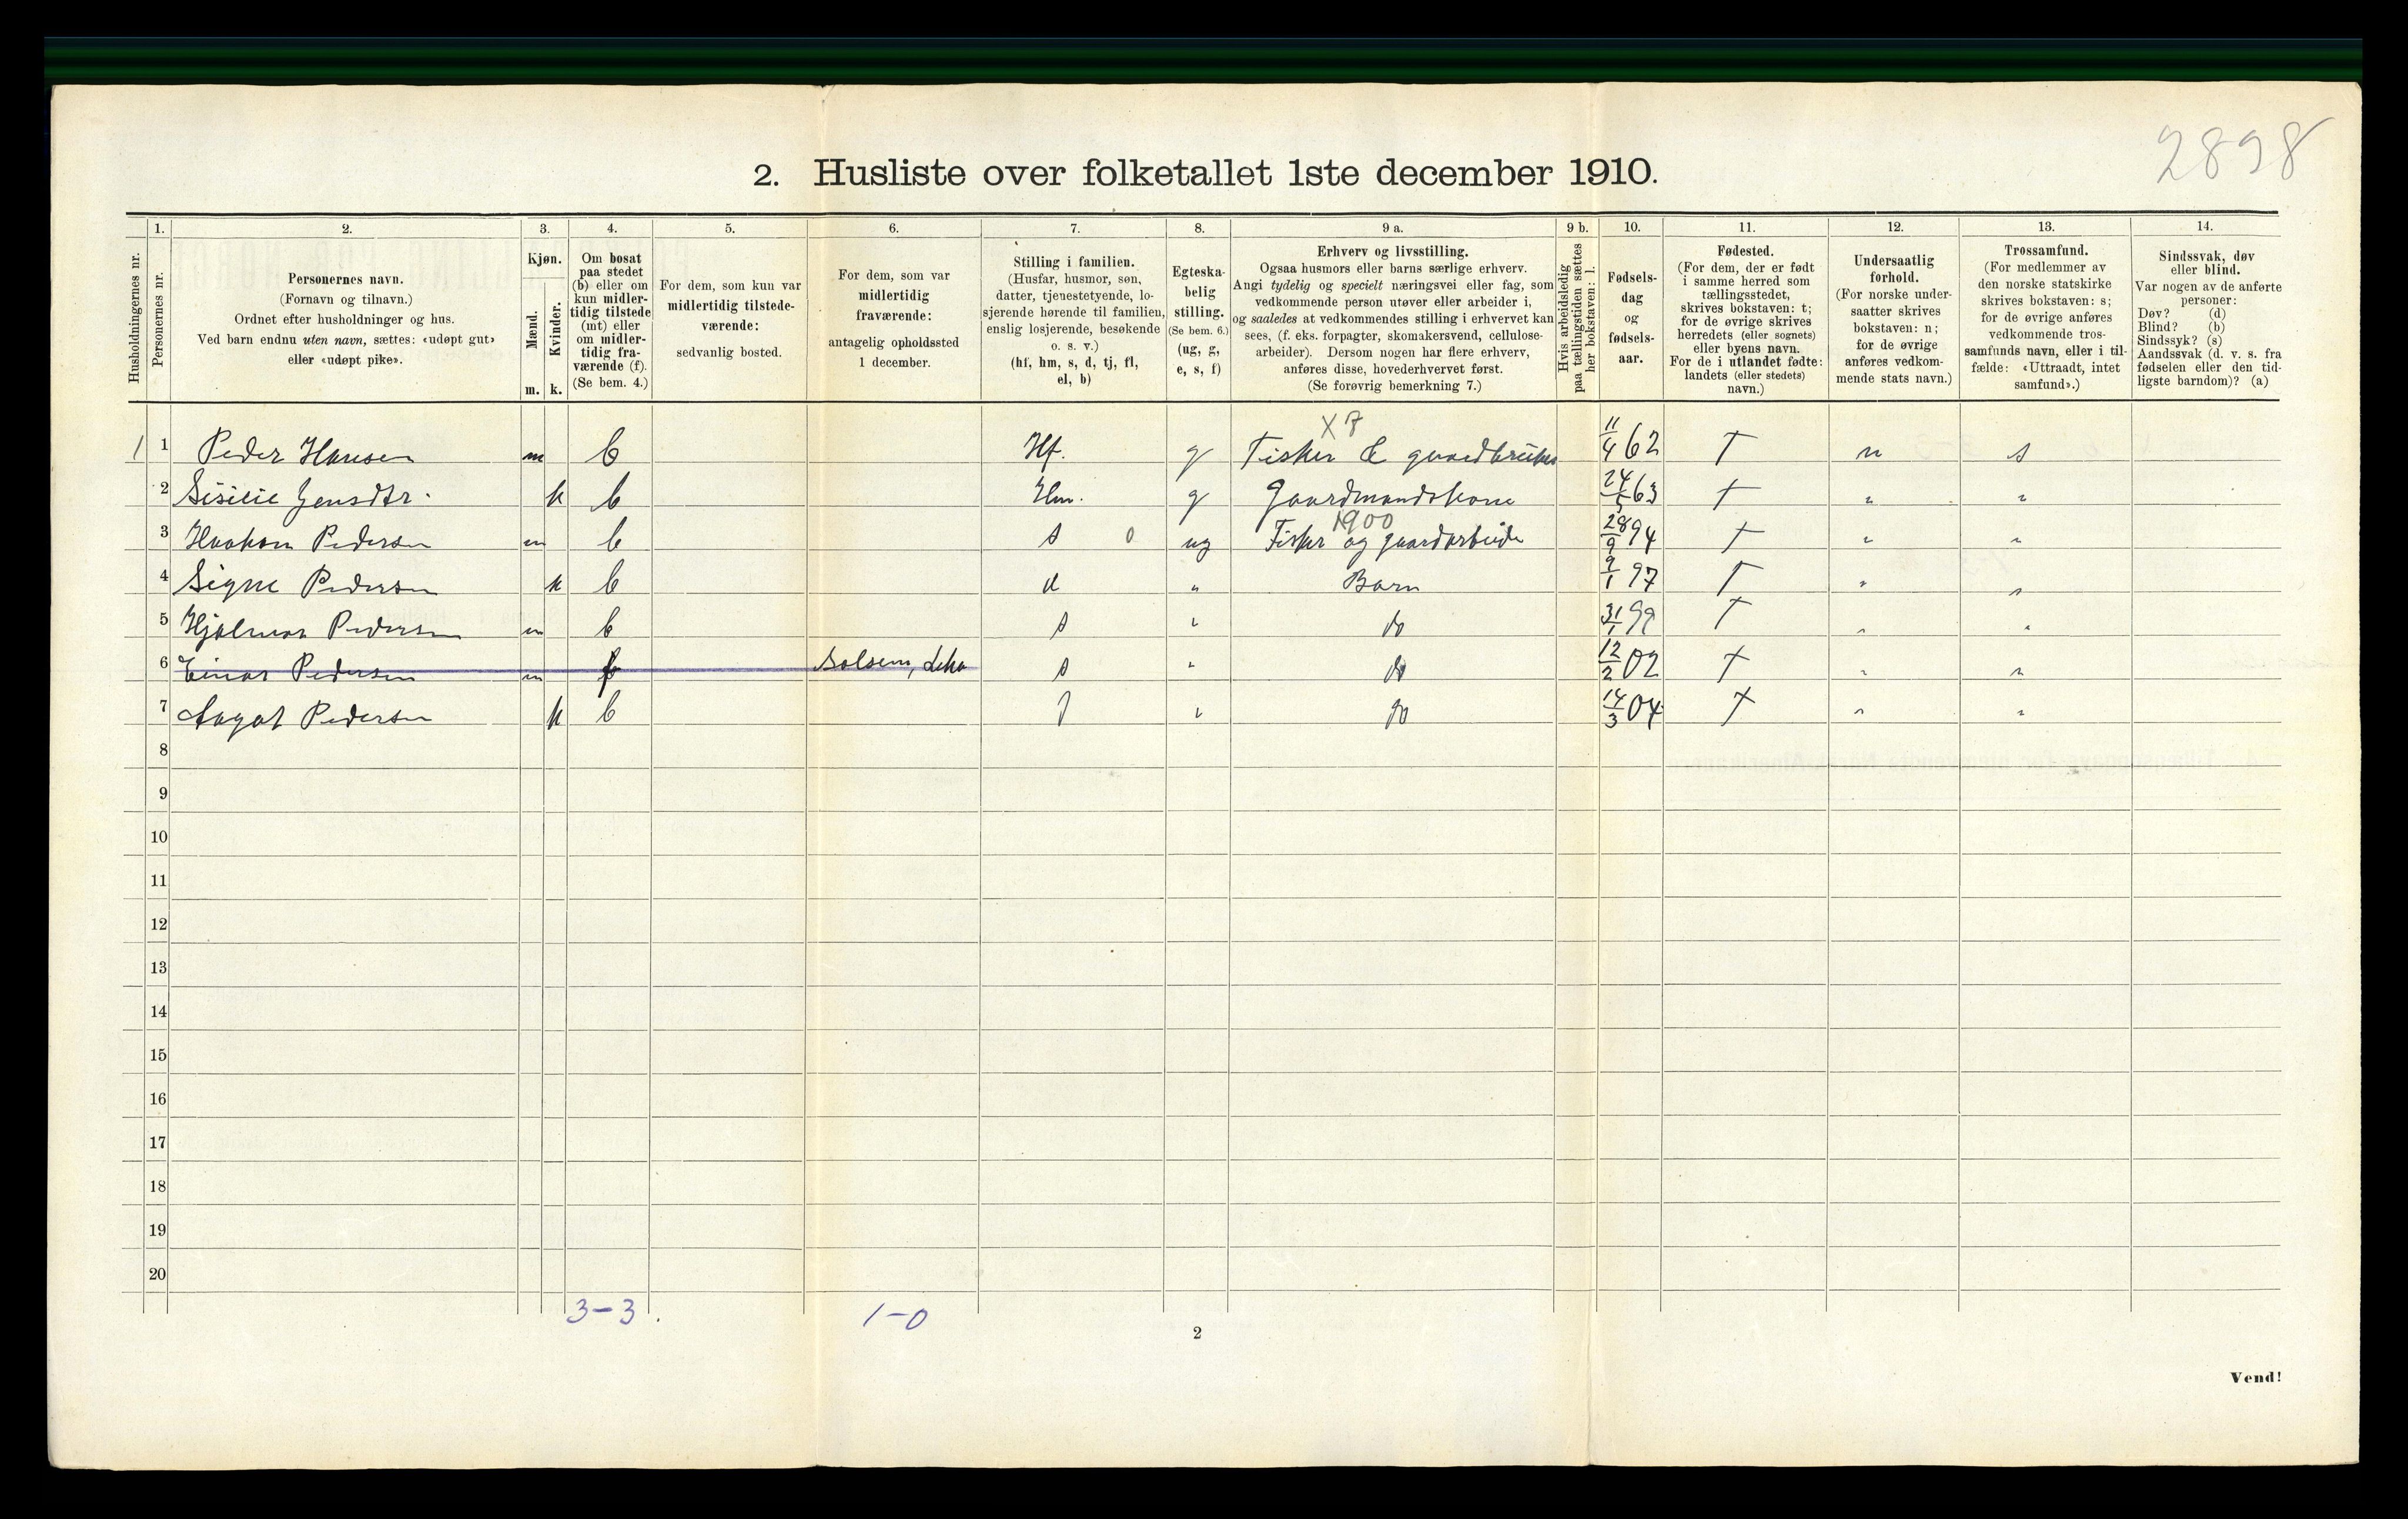 2898
2. Husliste over folketallet 1ste december 1910.
Husholdningernes nr.
1.
Personernes nr.
2.
Personernes navn.
(Fornavn og tilnavn.)
Ordnet efter husholdninger og hus.
Ved barn endnu uten navn, sættes: «udøpt gut»
eller «udøpt pike».
3.
Kjøn.
Mænd.
Kvinder.
m. k.
4.
Om bosat
paa stedet
(b) eller om
kun midler-
tidig tilstede
(mt) eller
om midler-
tidig fra-
værende (f).
(Se bem. 4.)
5.
For dem, som kun var
midlertidig tilstede-
værende:
sedvanlig bosted.
6.
For dem, som var
midlertidig
fraværende:
antagelig opholdssted
1 december.
7.
Stilling i familien.
(Husfar, husmor, søn,
datter, tjenestetyende, lo-
sjerende hørende til familien,
enslig losjerende, besøkende
o. s. v.)
(hf, hm, s, d, tj, fl,
el, b)
8.
Egteska-
belig
stilling.
(Se bem. 6.)
(ug, g,
e, s, f)
9 a.
Erhverv og livsstilling.
Ogsaa husmors eller barns særlige erhverv.
Angi tydelig og specielt næringsvei eller fag, som
vedkommende person utøver eller arbeider i,
og saaledes at vedkommendes stilling i erhvervet kan
sees, (f. eks. forpagter, skomakersvend, cellulose-
arbeider). Dersom nogen har flere erhverv,
anføres disse, hovederhvervet først.
(Se forøvrig bemerkning 7.)
9 b.
Hvis arbeidsledig
paa tællingstiden sættes
her bokstaven: l.
10.
Fødsels-
dag
og
fødsels-
aar.
11.
Fødested.
(For dem, der er født
i samme herred som
tællingsstedet,
skrives bokstaven: t;
for de øvrige skrives
herredets (eller sognets)
eller byens navn.
For de i utlandet fødte:
landets (eller stedets)
navn.)
12.
Undersaatlig
forhold.
(For norske under-
saatter skrives
bokstaven: n;
for de øvrige
anføres vedkom-
mende stats navn.)
13.
Trossamfund.
(For medlemmer av
den norske statskirke
skrives bokstaven: s;
for de øvrige anføres
vedkommende tros-
samfunds navn, eller i til-
fælde: «Uttraadt, intet
samfund».)
14.
Sindssvak, døv
eller blind.
Var nogen av de anførte
personer:
Døv? (d)
Blind? (b)
Sindssyk? (s)
Aandssvak (d. v. s. fra
fødselen eller den tid-
ligste barndom)? (a)
X 8
1 1 Peder Hansen m b Hf. g Fisker & gaardbruker 11/4 62 t n s
2 Sisilie Jensdtr. k b Hm. g Gaardmandskone 24/5 63 t " "
1900
3 Haakon Pedersen m b s 0 ug Fisker og gaardarbeide 28/9 94 t " "
4 Signe Pedersen k b d " Barn 9/1 97 t " "
5 Hjalmar Pedersen m b s " do 31/1 99 t " "
6 Einar Pedersen m f Solsem, Leka s " do 12/2 02 t " "
7 Aagot Pedersen k b d " do 14/3 04 t " "
8
9
10
11
12
13
14
15
16
17
18
19
20
3-3 1-0
2
Vend!